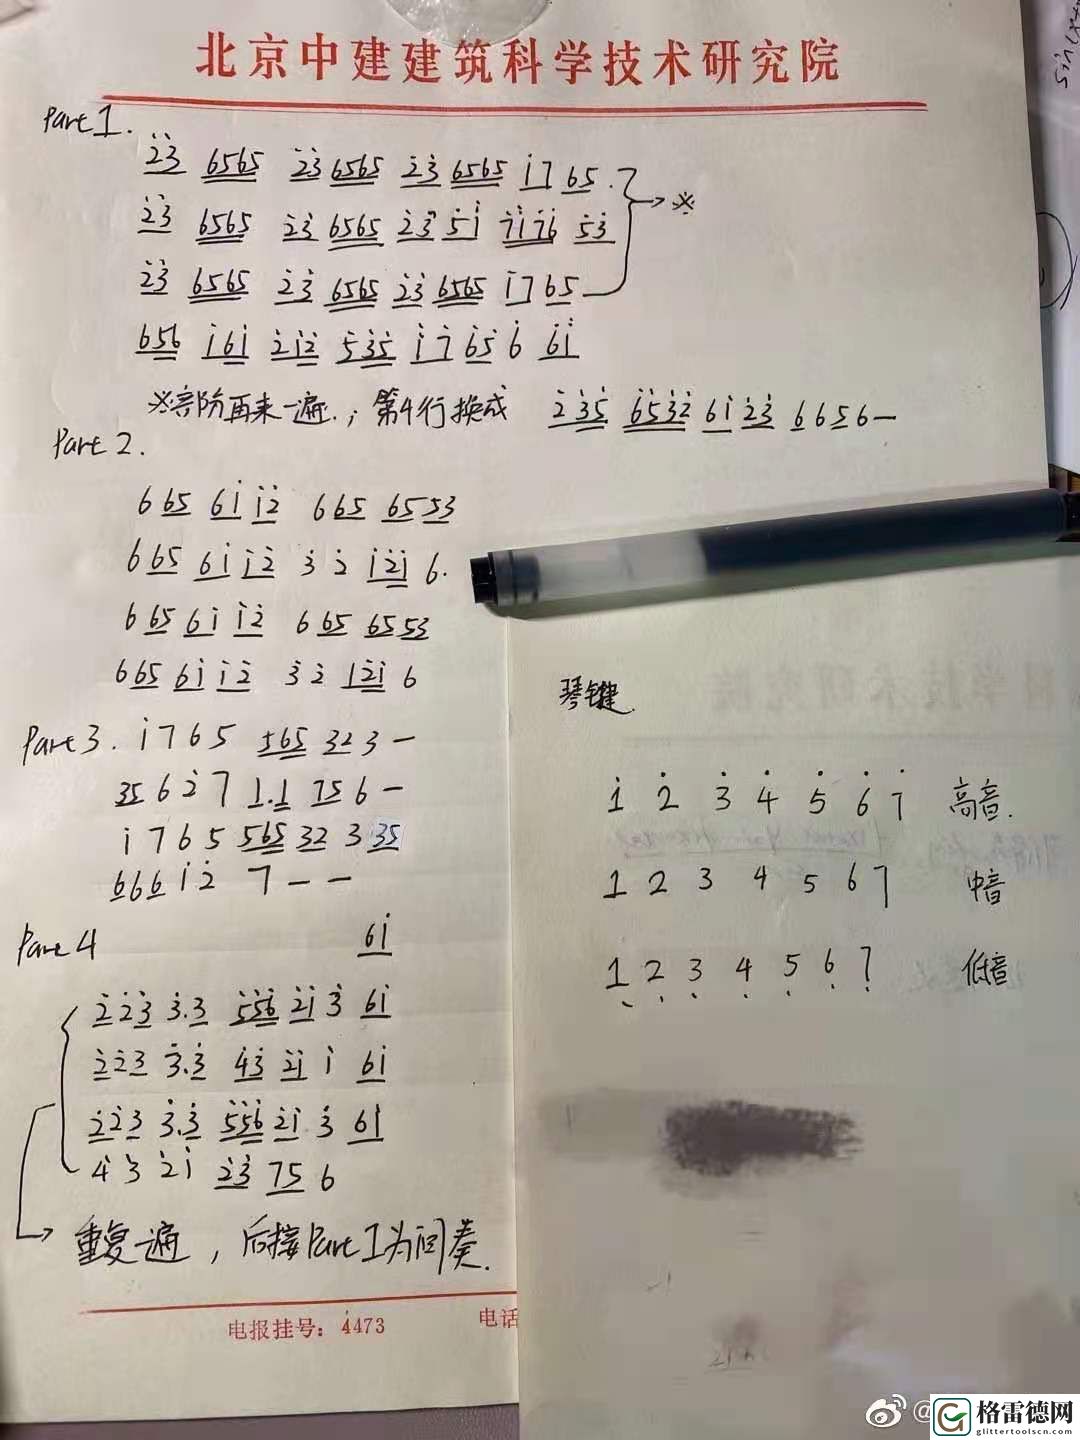 北京中建建筑科学技术研究院
Part 1.
2̇3̇ 6565 2̇3̇ 6565 2̇3̇ 6565 1̇7 65.
→※
2̇3̇ 6565 2̇3̇ 6565 2̇3̇ 5̇1̇ 7̇1̇7̇6̇ 5̇3̇
2̇3̇ 6565 2̇3̇ 6565 2̇3̇ 6565 1̇7 65
656 1̇61̇ 2̇1̇2̇ 5̇3̇5̇ 1̇7 65 6 61̇
再来一遍.; 第4行换成 2̇3̇5̇ 6̇5̇3̇2̇ 61̇ 2̇3̇ 6656—
Part 2.
665 61̇ 1̇2̇ 665 6553
665 61̇ 1̇2̇ 3̇ 2̇ 1̇2̇1̇ 6.
665 61̇ 1̇2̇ 665 6553
665 61̇ 1̇2̇ 3̇ 2̇ 12̇1̇ 6
Part 3. 1̇765 565 32 3 —
35 6 2̇ 7 1.1 75 6 —
1̇765 565 32 3 35
666 1̇ 2̇ 7 — —
Part 4 61̇
2̇2̇3̇ 3̇.3̇ 5̇5̇6̇ 2̇1̇ 3̇ 61̇
2̇2̇3̇ 3̇.3̇ 4̇3̇ 2̇1̇ 1̇ 61̇
2̇2̇3̇ 3̇.3̇ 5̇5̇6̇ 2̇1̇ 3̇ 61̇
4̇ 3̇ 2̇1̇ 2̇3̇ 75 6
重复一遍，后接Part 1为间奏.
电报挂号：4473
电话
琴键
1̇ 2̇ 3̇ 4̇ 5̇ 6̇ 7̇ 高音.
1 2 3 4 5 6 7 中音
1̣ 2̣ 3̣ 4̣ 5̣ 6̣ 7̣ 低音
@
格雷德网
glittertoolscn.com